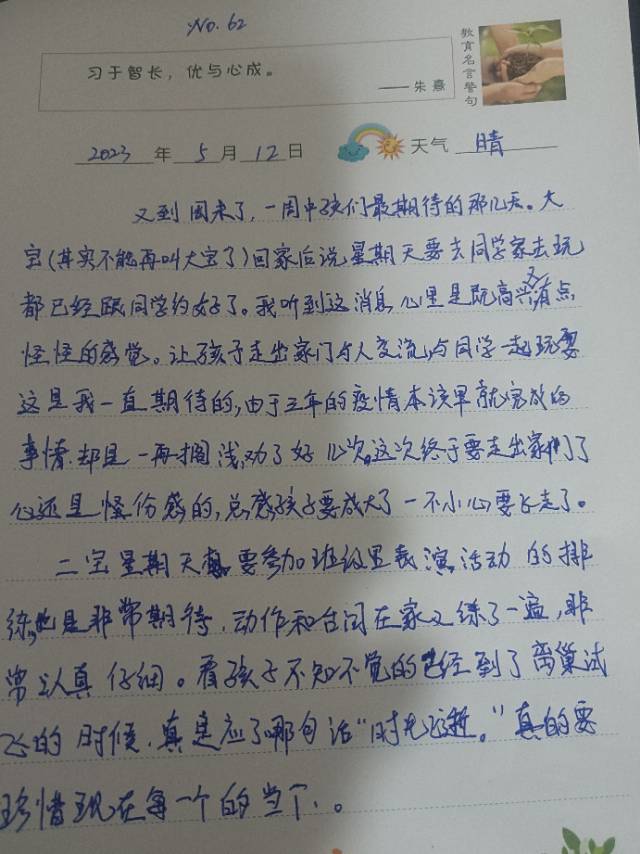 No. 62
习于智长，优与心成。
——朱熹
教育名言警句
2023年5月12日 天气 晴
又到周末了，一周中孩们最期待的那几天。大
宝(其实不能再叫大宝了)回家后说星期天要去同学家去玩
都已经跟同学约好了。我听到这消息心里是既高兴又有点
怪怪的感觉。让孩子走出家门与人交流,与同学一起玩耍
这是我一直期待的,由于三年的疫情本该早就完成的
事情却是一再搁浅,劝了好几次,这次终于要走出家门了
心还是怪伤感的,总感孩子要成大了一不小心要飞走了。
二宝星期天 要参加班级里表演活动的排
练,她是非常期待,动作和台词在家又练了一遍,非
常认真仔细。看孩子不知不觉的已经到了离巢试
飞的时候,真是应了那句话“时光飞逝。”真的要
珍惜现在每一个的当下。